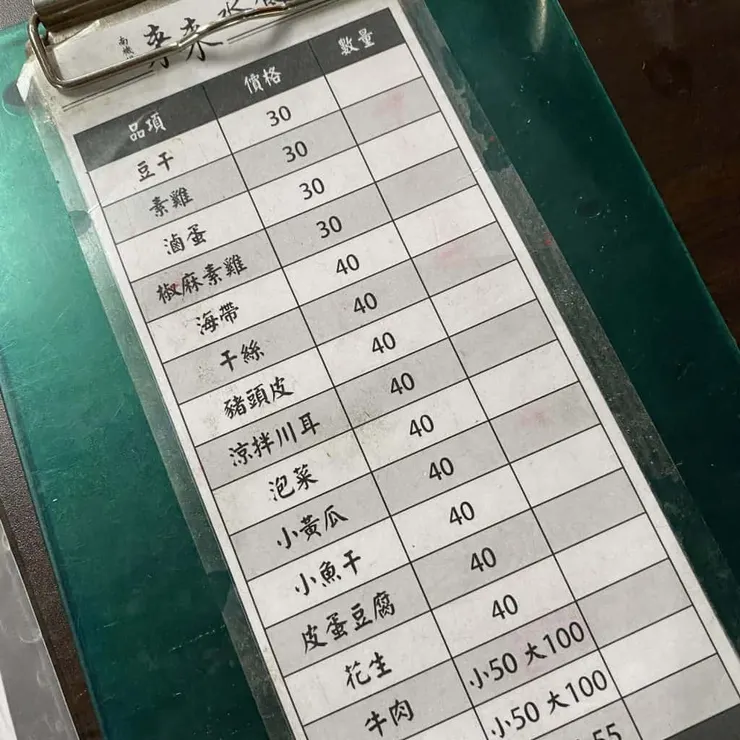 來來
品項 價格 數量
豆干 30
素雞 30
滷蛋 30
椒麻素雞 30
海帶 40
干絲 40
豬頭皮 40
涼拌川耳 40
泡菜 40
小黃瓜 40
小魚干 40
皮蛋豆腐 40
花生 40
牛肉 小50 大100
小50 大100
55